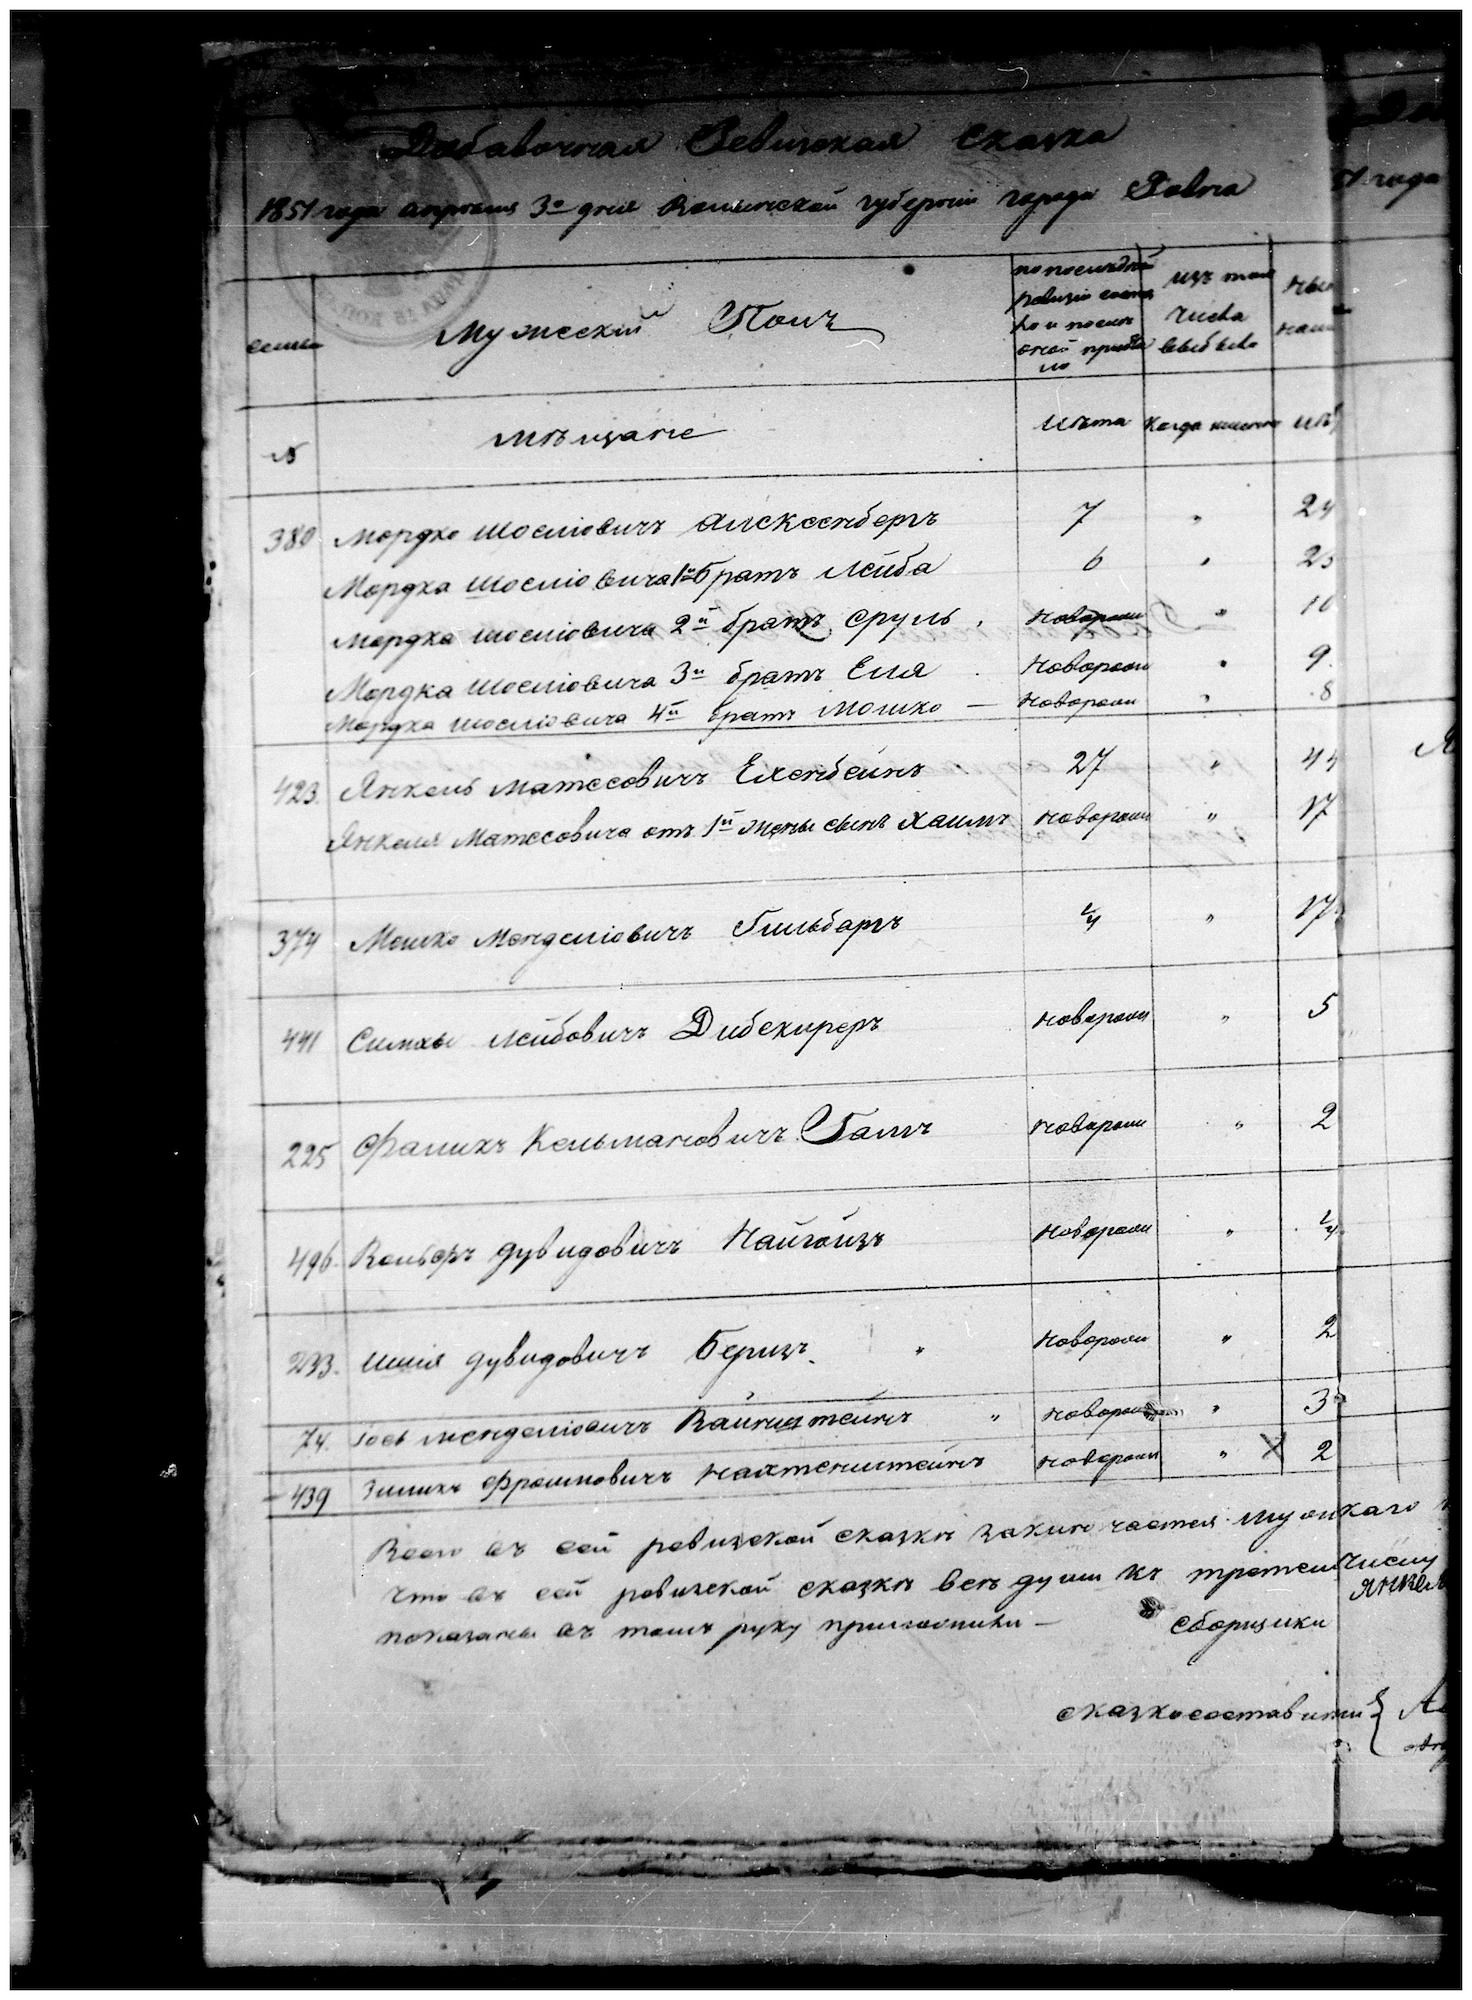 Добавочная Ревизская Сказка
1851 года апреля 3го дня Волынской губернии города Ровна
семьи
Мужеский Полъ
по последней ревизии состояло и после оной прибыло
изъ того числа выбыло
ныне на лицо
№
Мѣщане
Лѣта
Когда именно
Лѣт
380 Мордко Шослiовичъ Алексенберъ 7 " 24
Мордка Шослiовича 1й братъ Лейба 6 " 23
Мордка Шослiовича 2й братъ Сруль новорожн " 10
Мордка Шослiовича 3й братъ Еля новорожн " 9
Мордка Шослiовича 4й братъ Мошко — новорожн " 8
423. Янкель Матесовичъ Еленбейнъ 27 " 44
Янкеля Матесовича отъ 1й жены сынъ Хаимъ новорожн " 17
374 Мошко Менделiовичъ Гильбаръ ¼ " 17
441 Симхы Лейбовичъ Дибекиреръ новорожн " 5
225 Фаликъ Кельмановичъ Галъ новорожн " 2
496. Вольфъ Дувидовичъ Найгоизъ новорожн " ¼
233. Шия Дувидовичъ Беризъ " новорожн " 2
74. Iось Менделiовичъ Вайнштейнъ " новорожн " 3
439 Зиликъ Фроимовичъ Нахтенштейнъ новорожн " X 2
Всего въ сей ревизской сказкѣ заключается мужскаго
Что въ сей ревизской сказкѣ всѣ души къ третему числу
показаны въ томъ руку приложили — Сборщики Янкель
сказкосоставители {